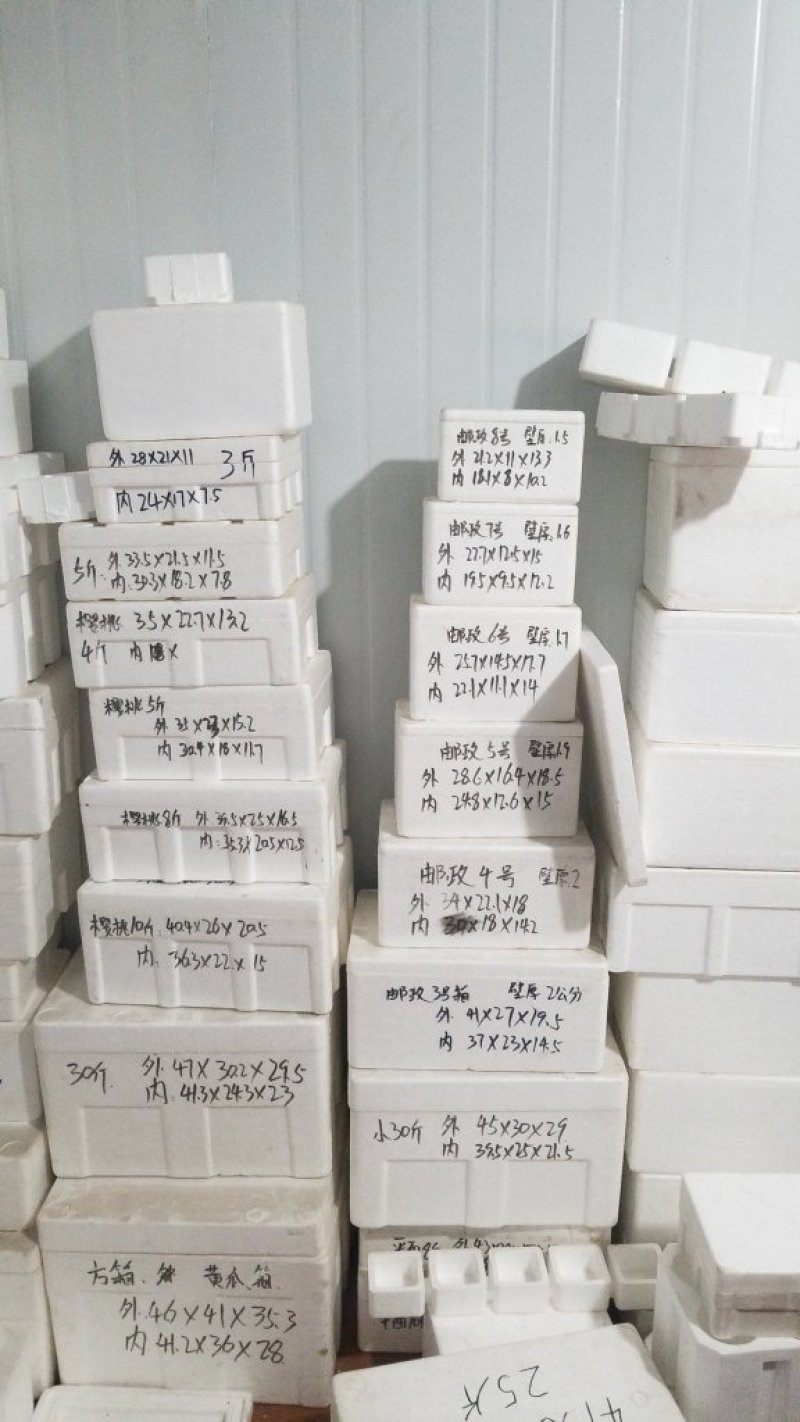 外 28X21X11 3斤
内 24X17X7.5
5斤. 外 33.5X21.5X11.5
内: 30.3X18.2X7.8
樱桃 35X22.7X13.2
4斤 内 X
樱桃5斤
外 35 X15.2
内 30.4X18X11.7
樱桃8斤 外 39.5X25X16.5
内: 35.3X20.5X12.5
樱桃10斤. 40.4X26X20.5
内. 36.3X22X15
30斤. 外. 47X30.2X29.5
内. 41.3X24.3X23
方箱. 黄瓜.箱.
外.46X41X35.3
内 41.2X36X28
邮政8号 壁厚.1.5
外 21.2X11X13.3
内 18.1X8X10.2
邮政7号 壁厚.1.6
外 22.7X12.5X15
内 19.5X9.5X12.2
邮政6号 壁厚.1.7
外 25.7X14.5X17.7
内 22.1X11.1X14
邮政5号 壁厚1.9
外 28.6X16.4X18.5
内 24.8X12.6X15
邮政4号 壁厚.2
外 34X22.1X18
内 30X18X14.2
邮政3号箱 壁厚2公分
外 41X27X19.5
内 37X23X14.5
小30斤 外 45X30X29
内 39.5X25X21.5
外43
25